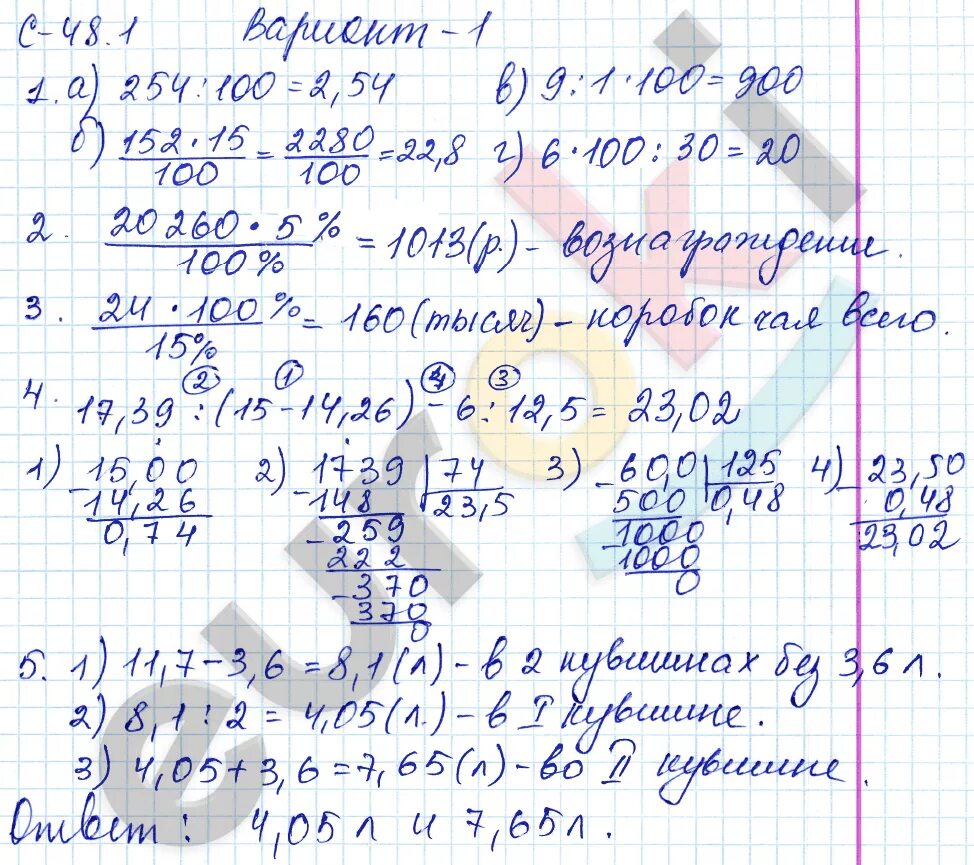 С-48.1 Вариант-1
1. а) 254:100=2,54 в) 9:1·100=900
б) 152·15/100=2280/100=22,8 г) 6·100:30=20
2. 20260·5%/100%=1013(р.)-вознаграждение.
3. 24·100%/15%=160(тысяч)-коробок чая всего.
2 1 4 3
4. 17,39:(15-14,26)-6:12,5=23,02
1) 15,00 2) 1739 74 3) 60,0 125 4) 23,50
-14,26 -148 23,5 -500 0,48 -0,48
0,74 -259 -1000 23,02
222 1000
-370 0
370
0
5. 1) 11,7-3,6=8,1(л)-в 2 кувшинах без 3,6л.
2) 8,1:2=4,05(л.)-в I кувшине.
3) 4,05+3,6=7,65(л)-во II кувшине.
Ответ: 4,05л и 7,65л.
euroki